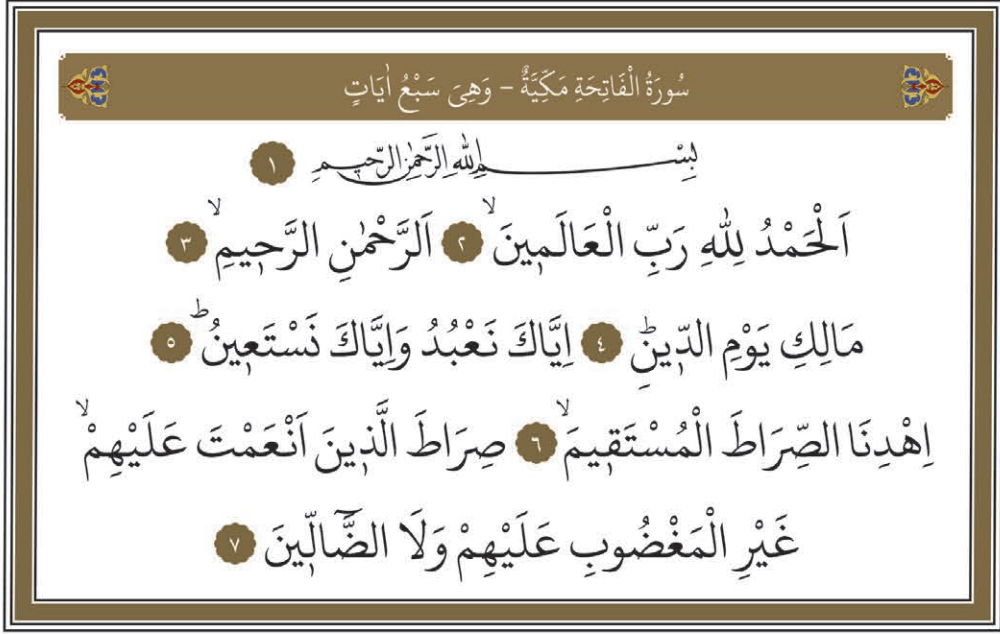 سُورَةُ الْفَاتِحَةِ مَكِّيَّةٌ – وَهِيَ سَبْعُ اٰيَاتٍ
بِسْمِ اللهِ الرَّحْمٰنِ الرَّحِيمِ ١
اَلْحَمْدُ لِلهِ رَبِّ الْعَالَمِينَۙ ٢ اَلرَّحْمٰنِ الرَّحِيمِۙ ٣
مَالِكِ يَوْمِ الدِّينِۜ ٤ اِيَّاكَ نَعْبُدُ وَاِيَّاكَ نَسْتَعِينُۜ ٥
اِهْدِنَا الصِّرَاطَ الْمُسْتَقِيمَۙ ٦ صِرَاطَ الَّذِينَ اَنْعَمْتَ عَلَيْهِمْۙ
غَيْرِ الْمَغْضُوبِ عَلَيْهِمْ وَلَا الضَّٓالِّينَ ٧